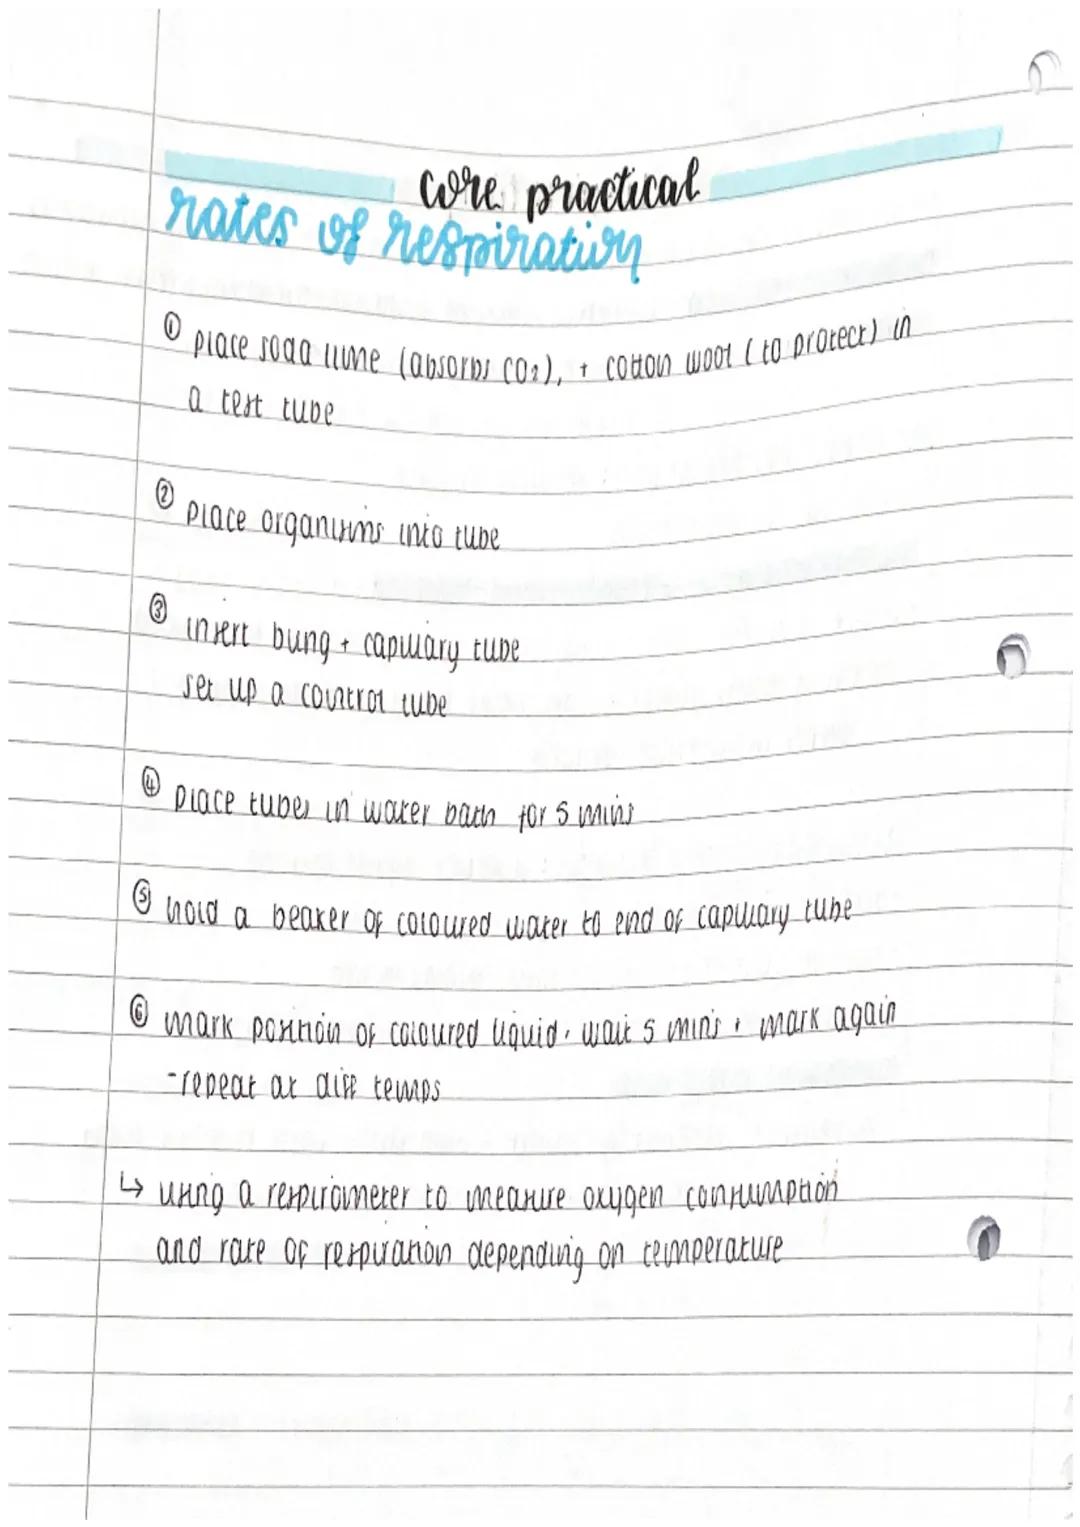 core practical
rates of respiration
① place soda lime (absorbs CO₂), + cotton wool (to protect) in
a test tube
② place organisms into tube
③ insert bung + capillary tube
set up a control tube
④ place tubes in water bath for 5 mins
⑤ hold a beaker of coloured water to end of capillary tube
⑥ mark position of coloured liquid, wait 5 mins + mark again
-repeat at diff temps
↳ using a respirometer to measure oxygen consumption
and rate of respiration depending on temperature